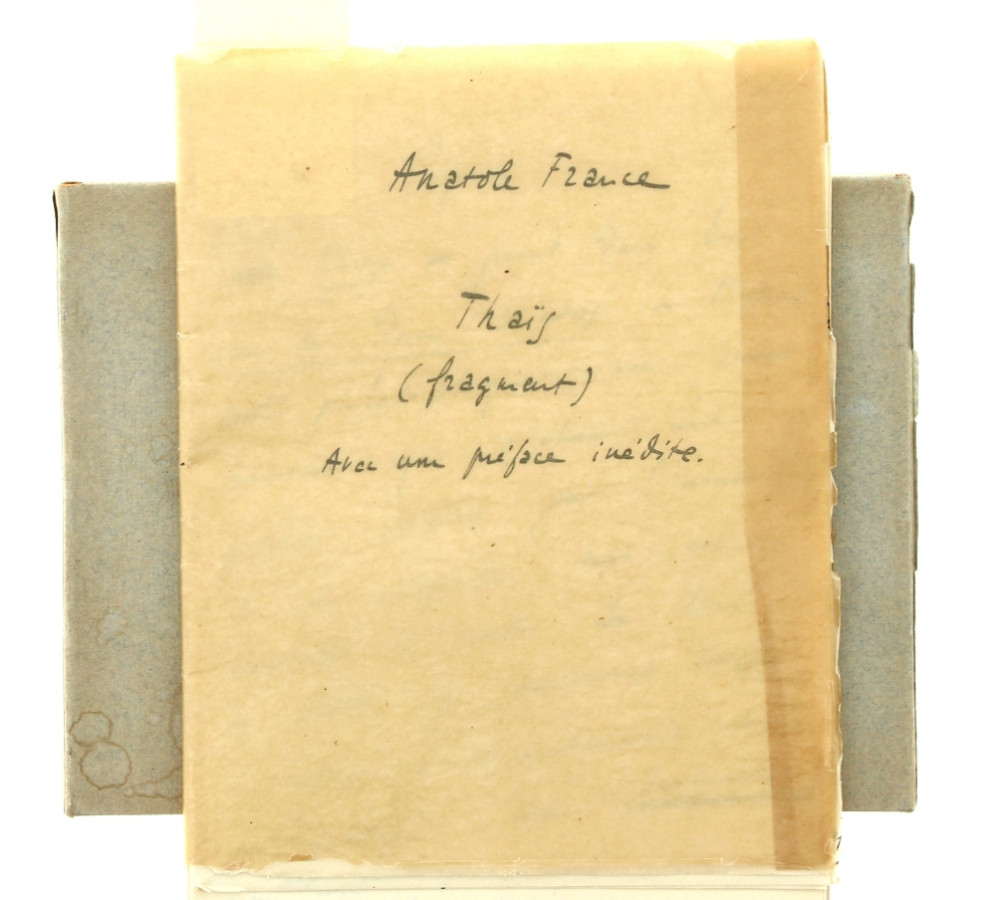 Anatole France
Thaïs
(fragment)
Avec une préface inédite.